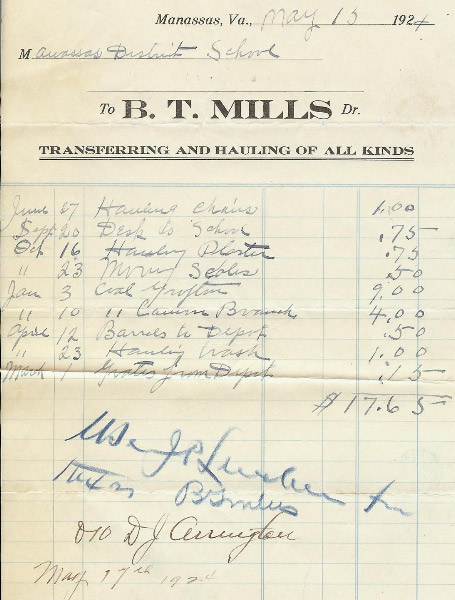 Manassas, Va., May 15 1924
Manassas District School
To B. T. MILLS Dr.
TRANSFERRING AND HAULING OF ALL KINDS
June 27 Hauling chairs 1.00
Sept 20 Desk to School .75
Oct 16 Hauling Plaster .75
" 23 Moving .50
Jan 3 Coal Grafton 9.00
" 10 " Cannon Branch 4.00
April 12 Barrels to Depot .50
" 23 Hauling trash 1.00
March 1 Grates from Depot .15
$17.65
D J Arrington
May 17th 1924